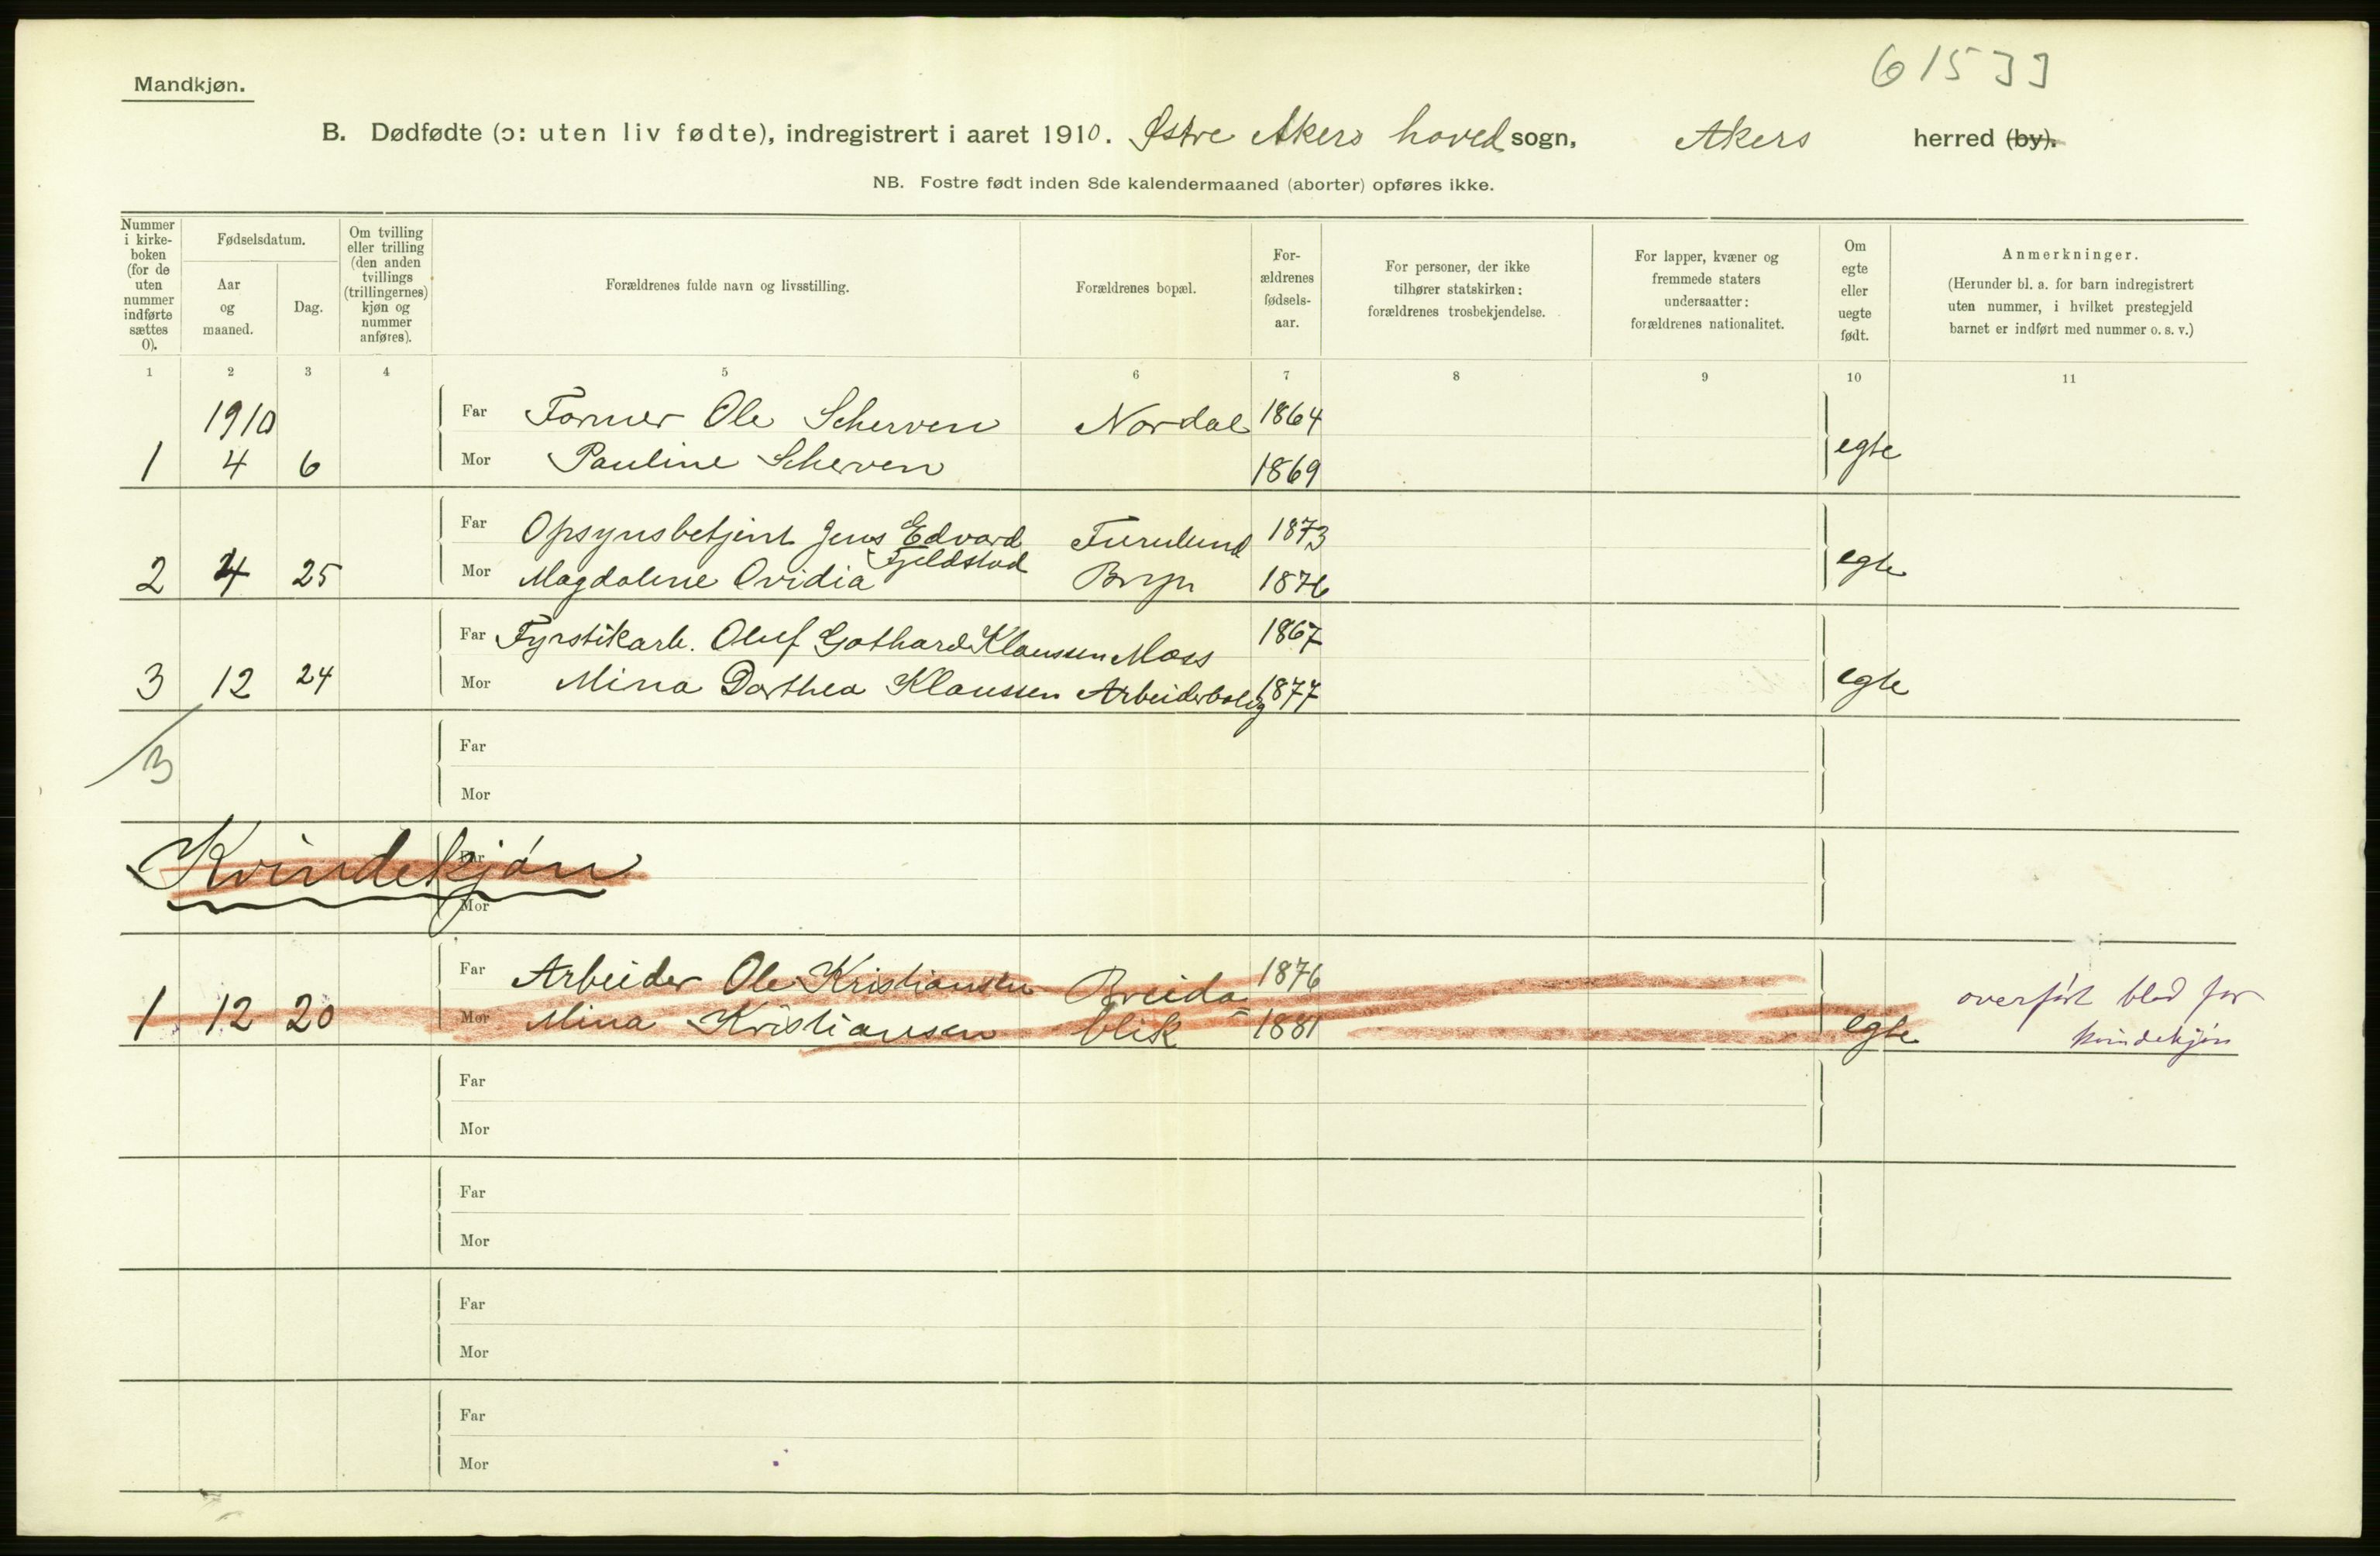 61533
Mandkjøn.
B. Dødfødte (ɔ: uten liv fødte), indregistrert i aaret 1910. Østre Akers hoved sogn, Akers herred (by).
NB. Fostre født inden 8de kalendermaaned (aborter) opføres ikke.
Nummer i kirke-boken (for de uten nummer indførte sættes 0).
Fødselsdatum.
Aar og maaned.
Dag.
Om tvilling eller trilling (den anden tvillings (trillingernes) kjøn og nummer anføres).
Forældrenes fulde navn og livsstilling.
Forældrenes bopæl.
For-ældrenes fødsels-aar.
For personer, der ikke tilhører statskirken: forældrenes trosbekjendelse.
For lapper, kvæner og fremmede staters undersaatter: forældrenes nationalitet.
Om egte eller uegte født.
Anmerkninger.
(Herunder bl. a. for barn indregistrert uten nummer, i hvilket prestegjeld barnet er indført med nummer o. s. v.)
1 2 3 4 5 6 7 8 9 10 11
1910 Far Former Ole Scherven Nordal 1864
1 4 6 Mor Pauline Scherven 1869 egte
Far Opsynsbetjent Jens Edvard Furulund 1873
Fjeldstad
2 4 25 Mor Magdalene Ovidia Bryn 1876 egte
Far Fyrstikarb. Oluf Gothard Klaussen Moss 1867
3 12 24 Mor Mina Dorthea Klaussen Arbeiderbolig 1877 egte
3
Far
Mor
Kvindekjøn
Far
Mor
Far Arbeider Ole Kristiansen Breida 1876 overført blad for
1 12 20 Mor Mina Kristiansen blik 1881 egte kvindekjøn
Far
Mor
Far
Mor
Far
Mor
Far
Mor